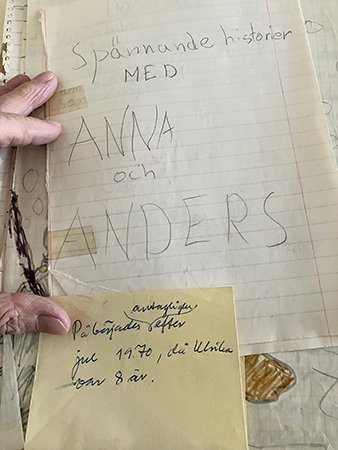 Spännande historier
MED
ANNA
och
ANDERS
antagligen
Påbörjades efter
jul 1970, då Ulrika
var 8 år.